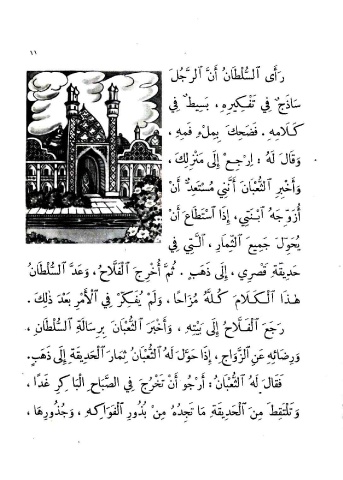 ١١
رَأَى ٱلسُّلْطَانُ أَنَّ ٱلرَّجُلَ
سَاذَجٌ فِي تَفْكِيرِهِ، بَسِيطٌ فِي
كَلَامِهِ. فَضَحِكَ بِمِلْءِ فَمِهِ،
وَقَالَ لَهُ: اِرْجِعْ إِلَى مَنْزِلِكَ،
وَأَخْبِرِ ٱلثُّعْبَانَ أَنَّنِي مُسْتَعِدٌّ أَنْ
أُزَوِّجَهُ ٱبْنَتِي، إِذَا ٱسْتَطَاعَ أَنْ
يُحَوِّلَ جَمِيعَ ٱلثِّمَارِ، ٱلَّتِي فِي
حَدِيقَةِ قَصْرِي، إِلَى ذَهَبٍ. ثُمَّ أُخْرِجَ ٱلْفَلَّاحُ، وَعَدَّ ٱلسُّلْطَانُ
هٰذَا ٱلْكَلَامَ كُلَّهُ مُزَاحًا، وَلَمْ يُفَكِّرْ فِي ٱلْأَمْرِ بَعْدَ ذٰلِكَ.
رَجَعَ ٱلْفَلَّاحُ إِلَى بَيْتِهِ، وَأَخْبَرَ ٱلثُّعْبَانَ بِرِسَالَةِ ٱلسُّلْطَانِ،
وَرِضَائِهِ عَنِ ٱلزَّوَاجِ، إِذَا حَوَّلَ لَهُ ٱلثُّعْبَانُ ثِمَارَ ٱلْحَدِيقَةِ إِلَى ذَهَبٍ.
فَقَالَ لَهُ ٱلثُّعْبَانُ: أَرْجُو أَنْ تَخْرُجَ فِي ٱلصَّبَاحِ ٱلْبَاكِرِ غَدًا،
وَتَلْتَقِطَ مِنَ ٱلْحَدِيقَةِ مَا تَجِدُهُ مِنْ بُذُورِ ٱلْفَوَاكِهِ، وَجُذُورِهَا،